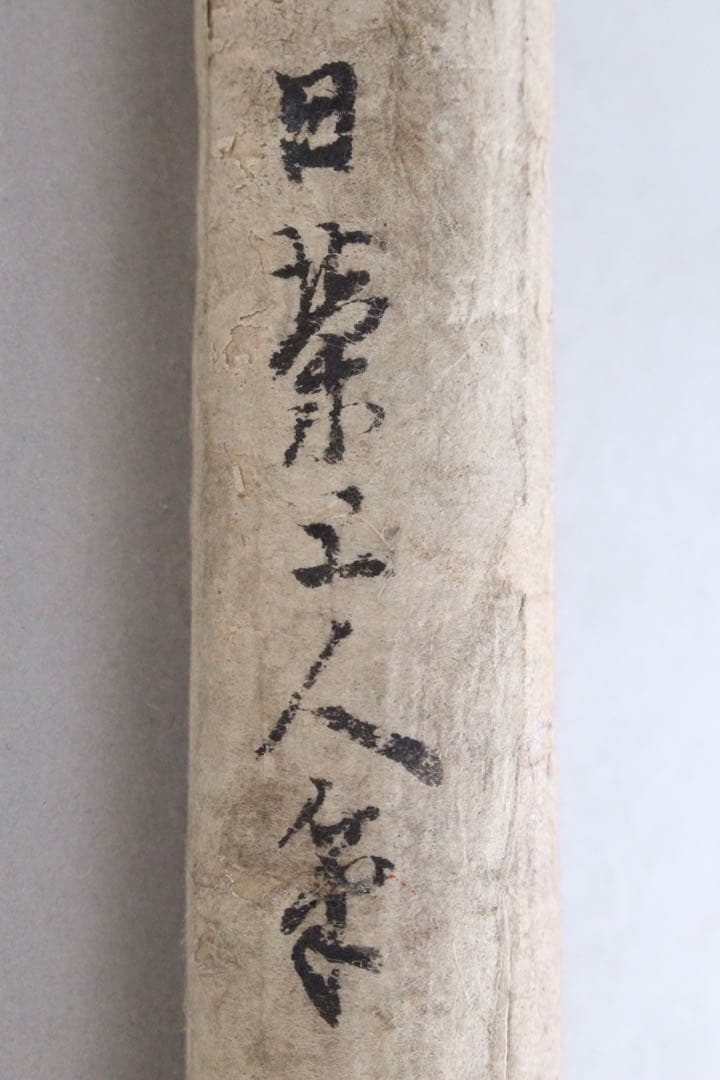 日葉上人筆